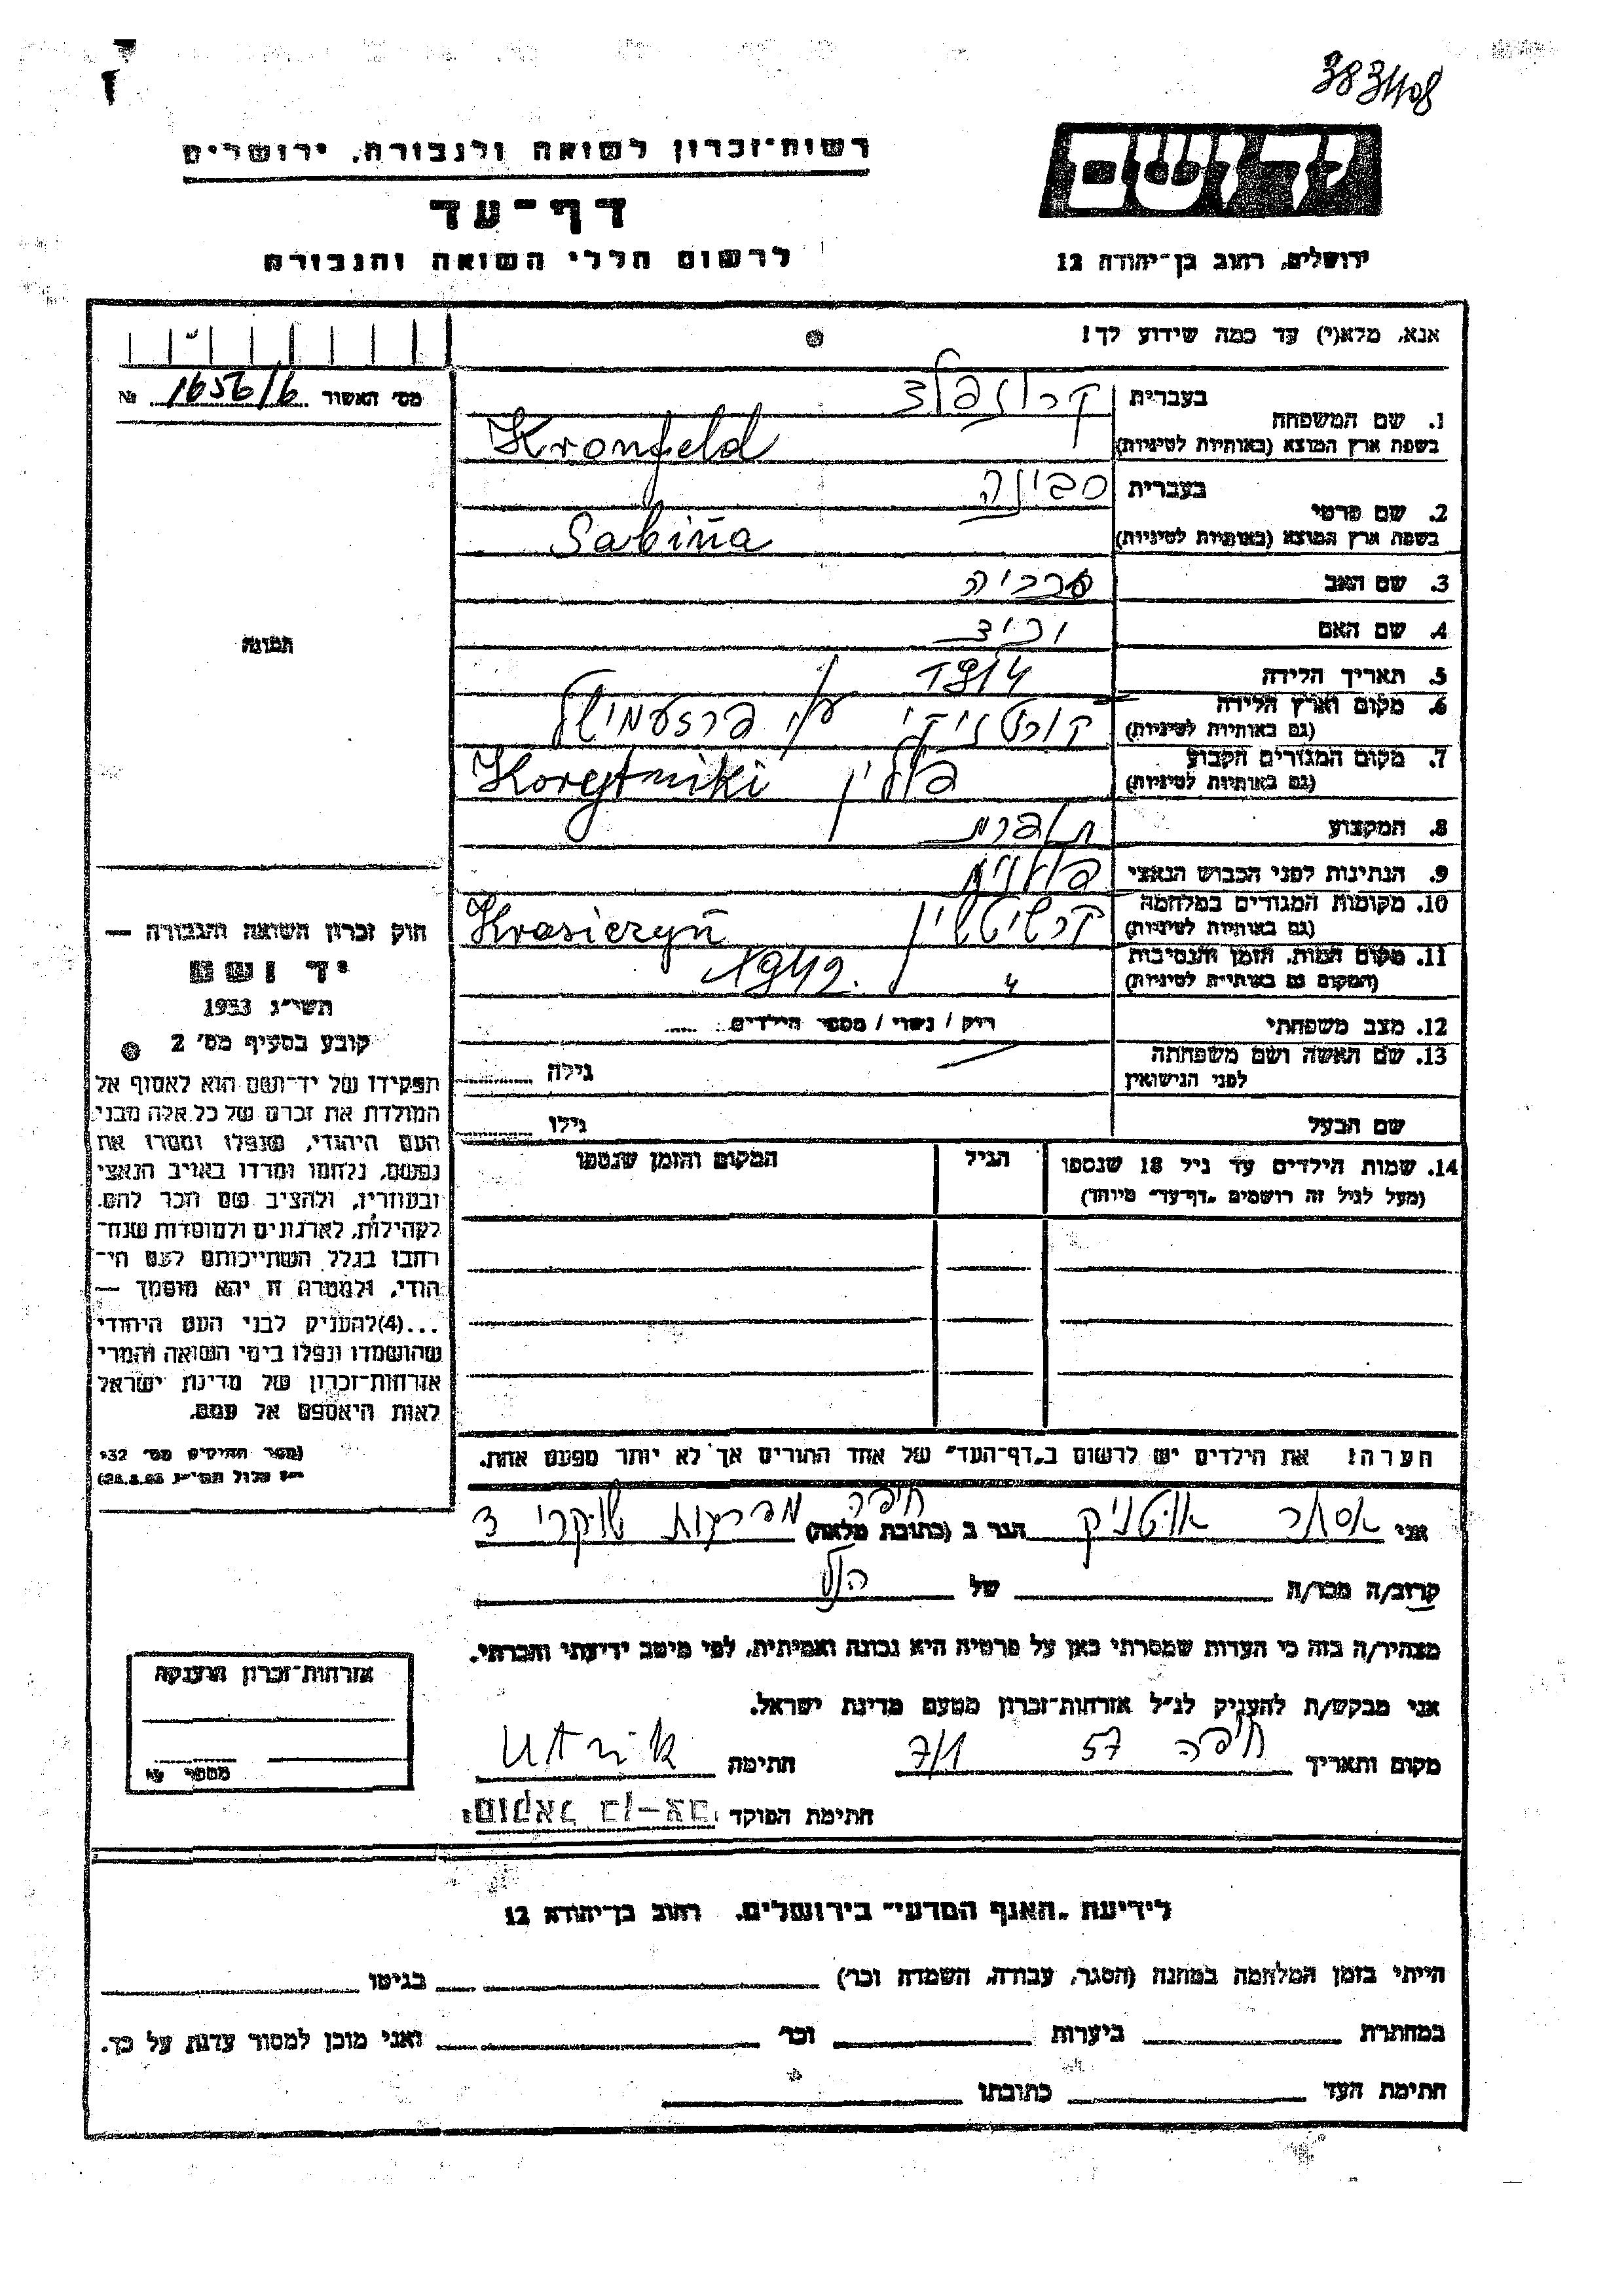 383408
רשות־זכרון לשואה ולגבורה, ירושלים
דף־עד
לרשום חללי השואה והגבורה
ידושם
ירושלים, רחוב בן־יהודה 12
אנא, מלא(י) עד כמה שידוע לך!
מס׳ האשור № 1656/6
1. שם המשפחה
בעברית קרונפלד
בשפת ארץ המוצא (באותיות לטיניות) Kronfeld
2. שם פרטי
בעברית סבינה
בשפת ארץ המוצא (באותיות לטיניות) Sabina
3. שם האב
4. שם האם
5. תאריך הלידה 1914
6. מקום וארץ הלידה קורטניקי ע״י פרזעמישל
(גם באותיות לטיניות)
7. מקום המגורים הקבוע פולין Korytniki
(גם באותיות לטיניות)
8. המקצוע תופרת
9. הנתינות לפני הכבוש הנאצי פולנית
10. מקומות המגורים במלחמה Krasiczyn
(גם באותיות לטיניות)
11. מקום המות, הזמן והנסיבות 1942.
(המקום גם באותיות לטיניות)
12. מצב משפחתי רווק / נשוי / מספר הילדים
13. שם האשה ושם משפחתה גילה
לפני הנישואין
שם הבעל גילו
14. שמות הילדים עד גיל 18 שנספו הגיל המקום והזמן שנספו
(מעל לגיל זה רושמים „דף־עד״ מיוחד)
תמונה
חוק זכרון השואה והגבורה —
יד ושם
תשי״ג 1953
קובע בסעיף מס׳ 2
תפקידו של יד־ושם הוא לאסוף אל
המולדת את זכרם של כל אלה מבני
העם היהודי, שנפלו ומסרו את
נפשם, נלחמו ומרדו באויב הנאצי
ובעוזריו, ולהציב שם וזכר להם,
לקהילות, לארגונים ולמוסדות שנח־
רבו בגלל השתייכותם לעם הי־
הודי, ולמטרה זו יהא מוסמך —
...(4)להעניק לבני העם היהודי
שהושמדו ונפלו בימי השואה והמרי
אזרחות־זכרון של מדינת ישראל
לאות היאספם אל עמם.
(ספר החוקים מס׳ 132
הערה! את הילדים יש לרשום ב„דף־העד״ של אחד ההורים אך לא יותר מפעם אחת.
אני אסתר אוטניק הגר ב (כתובת מלאה) חיפה
קרוב/ה מכר/ה של הנ״ל
מצהיר/ה בזה כי העדות שמסרתי כאן על פרטיה היא נכונה ואמיתית, לפי מיטב ידיעתי והכרתי.
אני מבקש/ת להעניק לנ״ל אזרחות־זכרון מטעם מדינת ישראל.
מקום ותאריך חיפה 57 7/1 חתימה
חתימת הפוקד
אזרחות־זכרון הוענקה
מספר
לידיעת „האגף המדעי״ בירושלים, רחוב בן־יהודה 12
הייתי בזמן המלחמה במחנה (הסגר, עבודה, השמדה וכר׳) בגיטו
במחתרת ביערות וכר׳ ואני מוכן למסור עדות על כך.
חתימת העד כתובתו